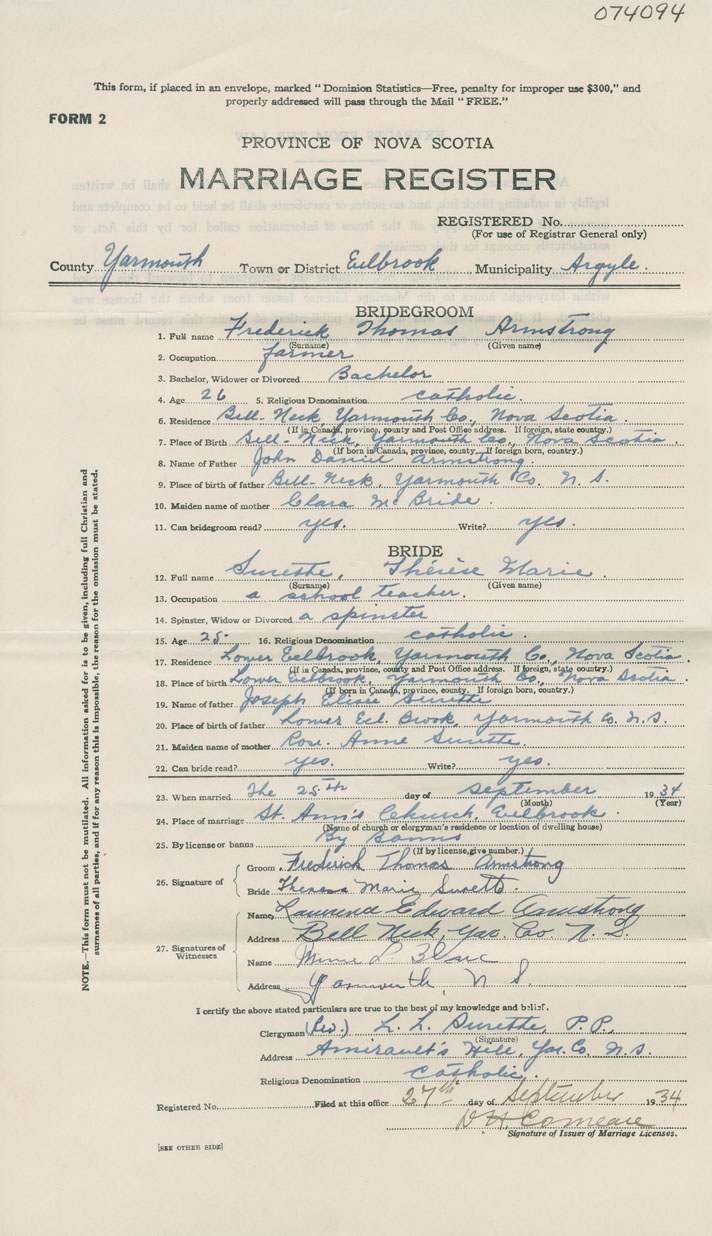 074094
This form, if placed in an envelope, marked "Dominion Statistics—Free, penalty for improper use $300," and
properly addressed will pass through the Mail "FREE."
FORM 2
PROVINCE OF NOVA SCOTIA
MARRIAGE REGISTER
REGISTERED No.
(For use of Registrar General only)
County Yarmouth Town or District Eelbrook Municipality Argyle.
BRIDEGROOM
1. Full name Frederick Thomas Armstrong
(Surname) (Given name)
2. Occupation farmer
3. Bachelor, Widower or Divorced Bachelor
4. Age 26 5. Religious Denomination catholic.
6. Residence Bell-Neck, Yarmouth Co., Nova Scotia.
(If in Canada, province, county and Post Office address. If foreign, state country.)
7. Place of Birth Bell-Neck, Yarmouth Co., Nova Scotia.
(If born in Canada, province, county. If foreign born, country.)
8. Name of Father John Daniel Armstrong.
9. Place of birth of father Bell-Neck, Yarmouth Co. N. S.
10. Maiden name of mother Clara McBride.
11. Can bridegroom read? yes. Write? yes.
BRIDE
12. Full name Surette, Thérèse Marie.
(Surname) (Given name)
13. Occupation a school teacher.
14. Spinster, Widow or Divorced a spinster
15. Age 25- 16. Religious Denomination catholic.
17. Residence Lower Eelbrook, Yarmouth Co., Nova Scotia.
(If in Canada, province, county and Post Office address. If foreign, state country.)
18. Place of birth Lower Eelbrook, Yarmouth Co., Nova Scotia.
(If born in Canada, province, county. If foreign born, country.)
19. Name of father Joseph Elisée Surette
20. Place of birth of father Lower Eel Brook, Yarmouth Co. N.S.
21. Maiden name of mother Rose Anne Surette.
22. Can bride read? yes. Write? yes.
23. When married The 25th day of September 1934
(Month) (Year)
24. Place of marriage St. Ann's Church, Eelbrook.
(Name of church or clergyman's residence or location of dwelling house)
25. By license or banns By Banns
(If by license, give number.)
26. Signature of
Groom Frederick Thomas Armstrong
Bride Theresa Marie Surette.
27. Signatures of Witnesses
Name, Lawrence Edward Armstrong
Address Bell Neck, Yar. Co. N. S.
Name
Address Yarmouth, N S.
I certify the above stated particulars are true to the best of my knowledge and belief.
Clergyman (Rev.) L. L. Surette, P.P.,
(Signature)
Address Amirault's Hill, Yar. Co. N.S.
Religious Denomination catholic.
Registered No. Filed at this office 27th day of September 1934
Comeau
Signature of Issuer of Marriage Licenses.
[SEE OTHER SIDE]
NOTE.—This form must not be mutilated. All information asked for is to be given, including full Christian and
surnames of all parties, and if for any reason this is impossible, the reason for the omission must be stated.